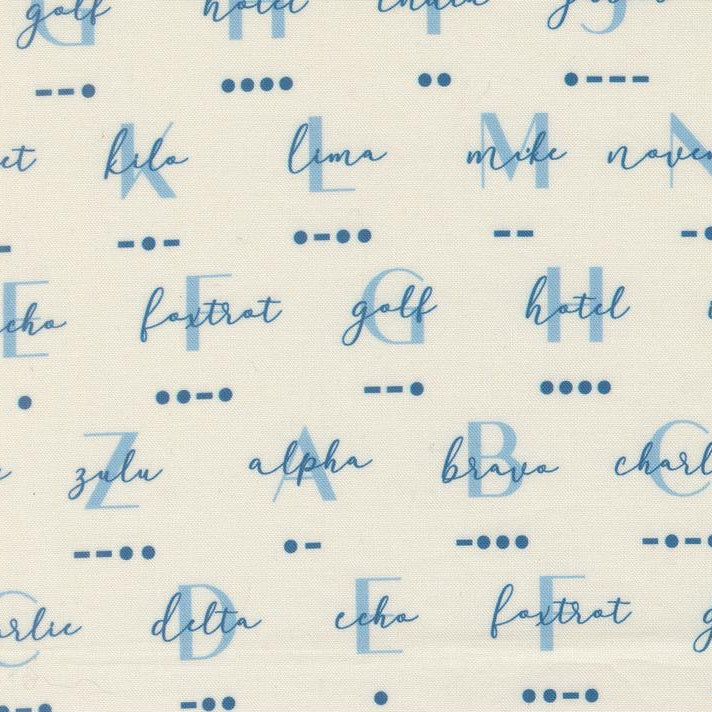 G golf H hotel
− − ● ● ● ● ● ● ● ● − − −
et K kilo L lima M mike N novem
− − ● − ● − ● ● − − − ●
E echo F foxtrot G golf H hotel
● ● ● − ● − − ● ● ● ● ●
Z zulu A alpha B bravo C charl
− − ● ● ● − − ● ● ● − ● − ●
C arlie D delta E echo F foxtrot g
● − ● − ● ● ● ● ● − ●